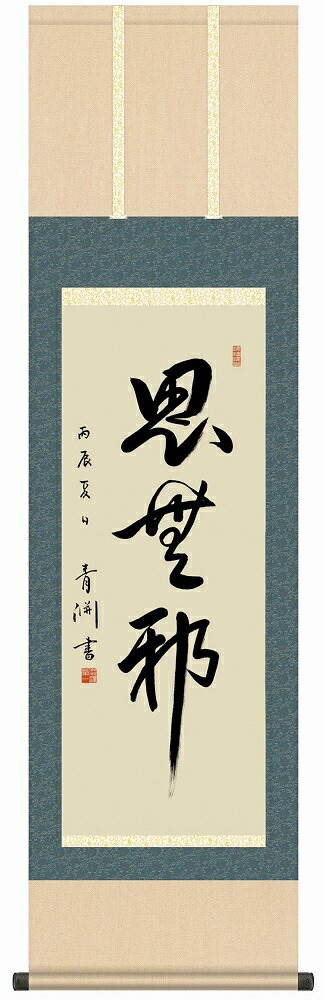 思無邪
丙辰夏日 青洲書